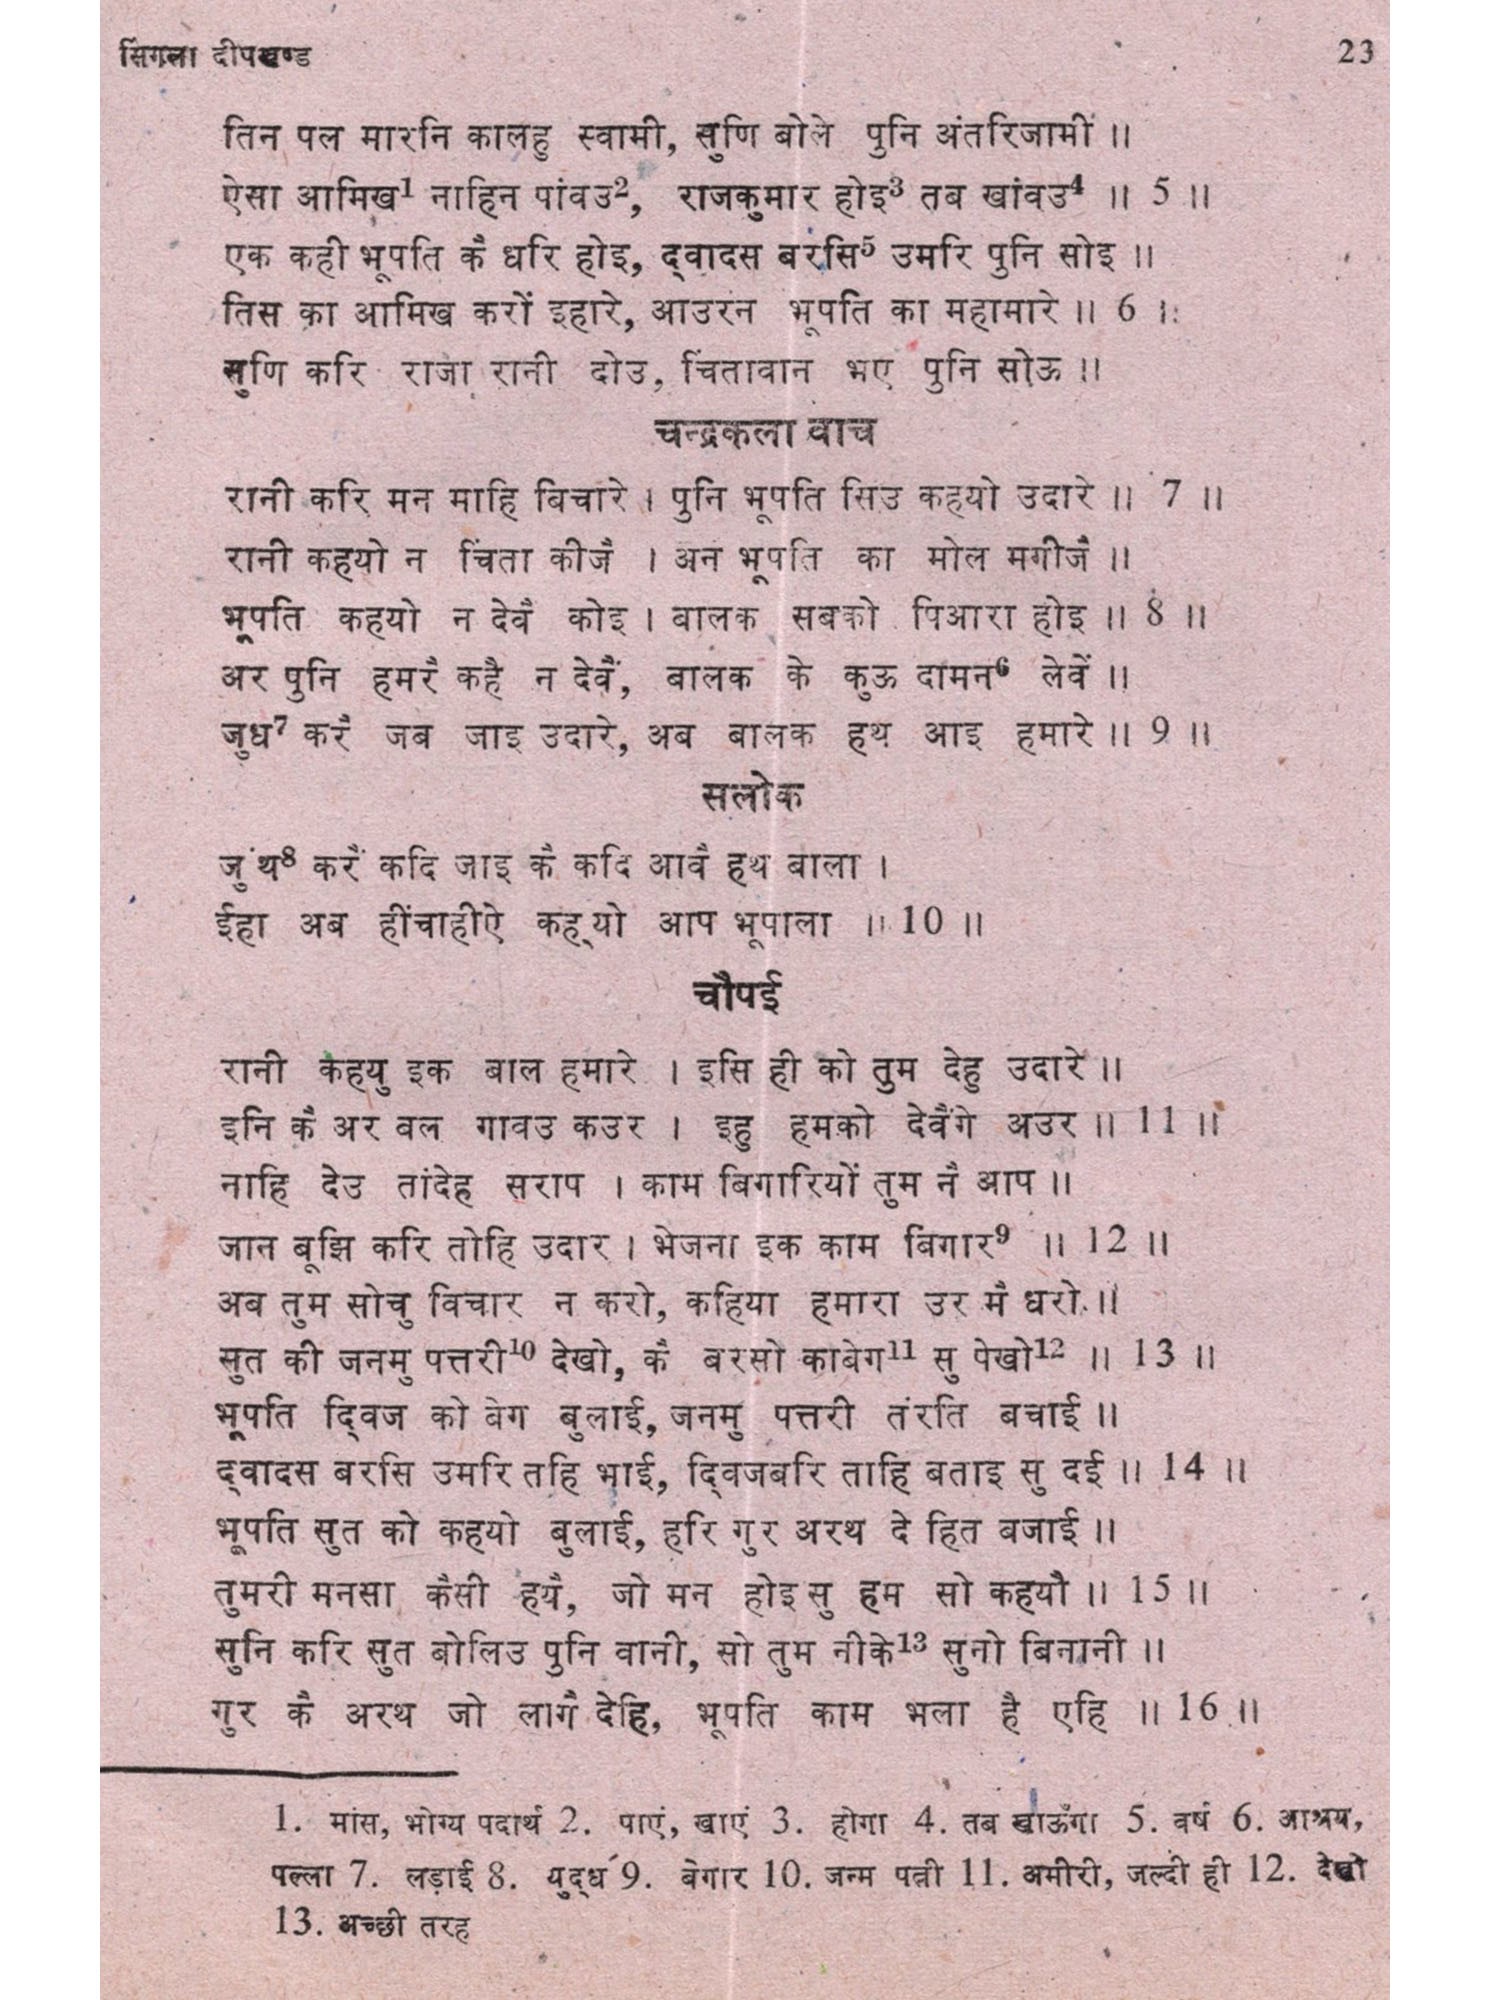 सिंगला दीपखण्ड 23
तिन पल मारनि कालहु स्वामी, सुणि बोले पुनि अंतरिजामीं ॥
ऐसा आमिख¹ नाहिन पांवउ², राजकुमार होइ³ तब खांवउ⁴ ॥ 5 ॥
एक कही भूपति कै धरि होइ, द्वादस बरसि⁵ उमरि पुनि सोइ ॥
तिस का आमिख करों इहारे, आउरन भूपति का महामारे ॥ 6 ॥
सुणि करि राजा रानी दोउ, चिंतावान भए पुनि सोऊ ॥
चन्द्रकला वाच
रानी करि मन माहि बिचारे । पुनि भूपति सिउ कहयो उदारे ॥ 7 ॥
रानी कहयो न चिंता कीजै । अन भूपति का मोल मगीजै ॥
भूपति कहयो न देवै कोइ । बालक सबको पिआरा होइ ॥ 8 ॥
अर पुनि हमरै कहै न देवैं, बालक के कुऊ दामन⁶ लेवें ॥
जुध⁷ करै जब जाइ उदारे, अब बालक हथ आइ हमारे ॥ 9 ॥
सलोक
जुंथ⁸ करैं कदि जाइ कै कदि आवै हथ बाला ।
ईहा अब हींचाहीऐ कह्यो आप भूपाला ॥ 10 ॥
चौपई
रानी कहयु इक बाल हमारे । इसि ही को तुम देहु उदारे ॥
इनि कै अर बल गावउ कउर । इहु हमको देवैंगे अउर ॥ 11 ॥
नाहि देउ तांदेह सराप । काम बिगारियों तुम नै आप ॥
जान बूझि करि तोहि उदार । भेजना इक काम बिगार⁹ ॥ 12 ॥
अब तुम सोचु विचार न करो, कहिया हमारा उर मैं धरो ॥
सुत की जनमु पत्तरी¹⁰ देखो, कै बरसो काबेग¹¹ सु पेखो¹² ॥ 13 ॥
भूपति द्विज को बेग बुलाई, जनमु पत्तरी तंरति बचाई ॥
द्वादस बरसि उमरि तहि भाई, द्विजबरि ताहि बताइ सु दई ॥ 14 ॥
भूपति सुत को कहयो बुलाई, हरि गुर अरथ दे हित बजाई ॥
तुमरी मनसा कैसी हयै, जो मन होइ सु हम सो कहयौ ॥ 15 ॥
सुनि करि सुत बोलिउ पुनि वानी, सो तुम नीके¹³ सुनो बिनानी ॥
गुर कै अरथ जो लागै देहि, भूपति काम भला है एहि ॥ 16 ॥
1. मांस, भोग्य पदार्थ 2. पाएं, खाएं 3. होगा 4. तब खाऊँगा 5. वर्ष 6. आश्रय,
पल्ला 7. लड़ाई 8. युद्ध 9. बेगार 10. जन्म पत्री 11. अमीरी, जल्दी ही 12. देखो
13. अच्छी तरह